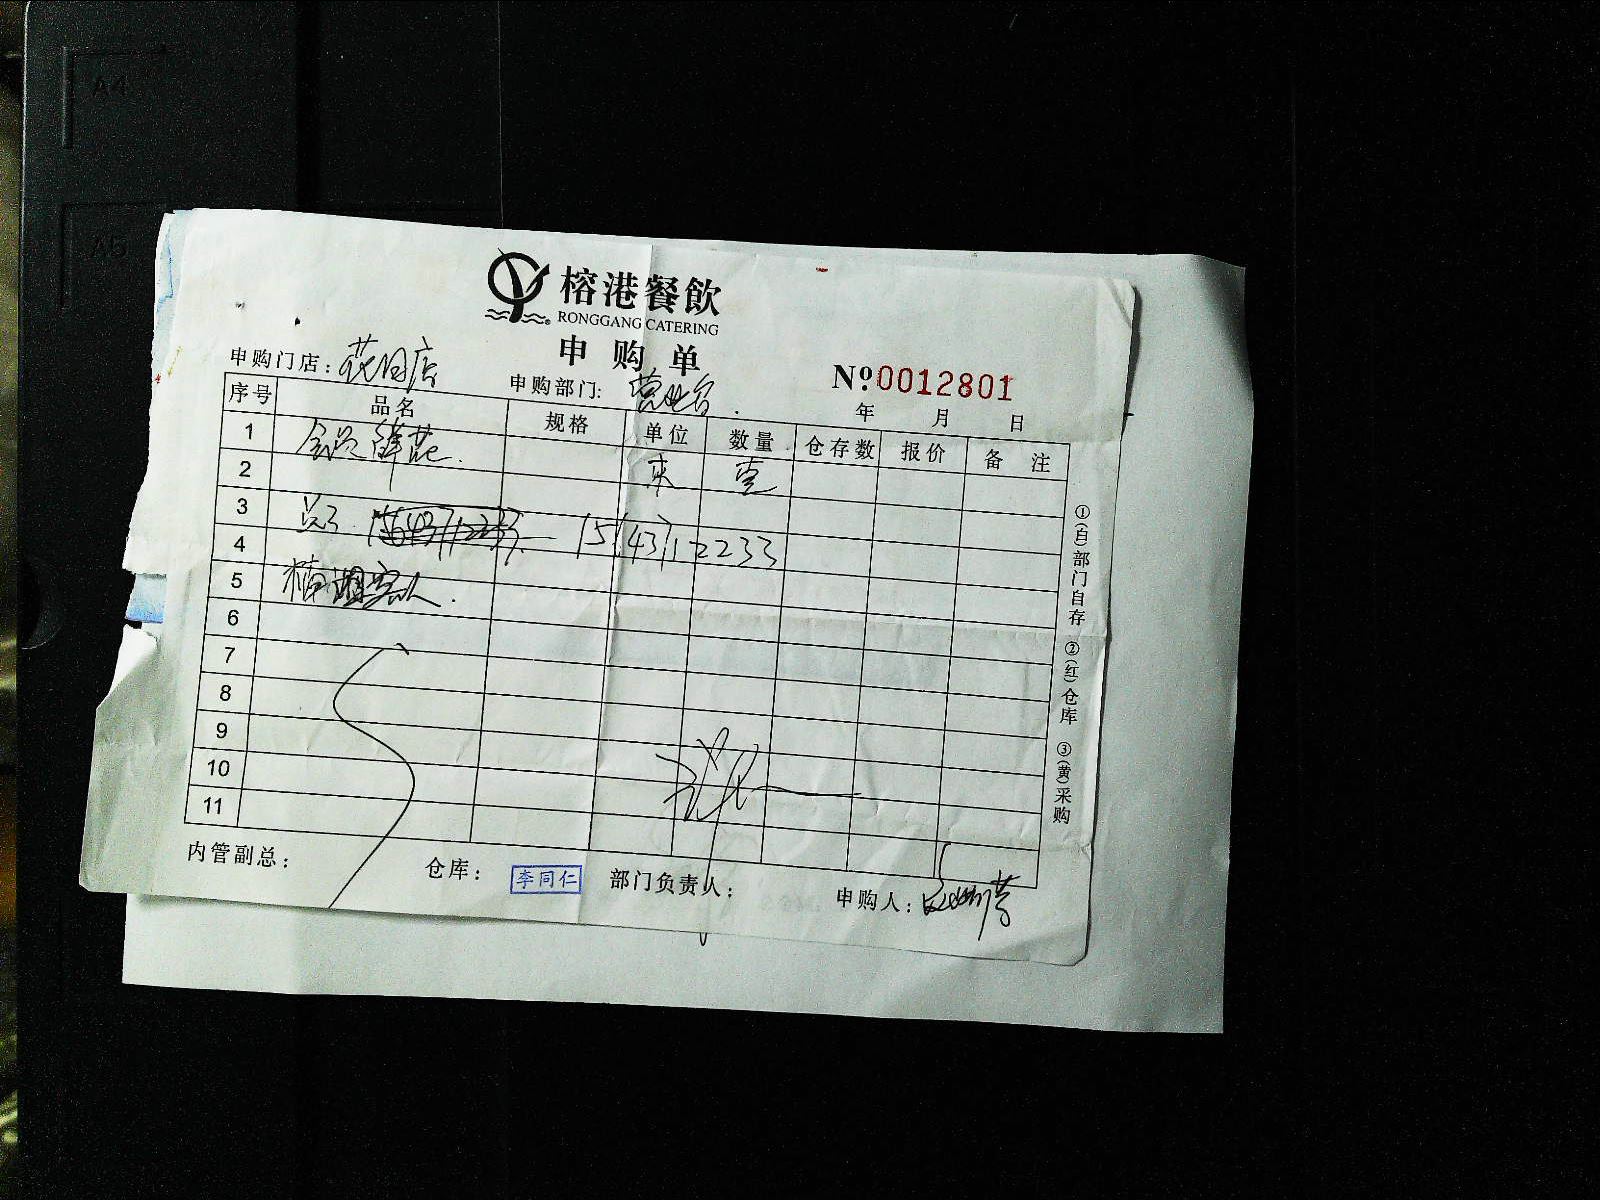 A4
A5
榕港餐飲
RONGGANG CATERING
申购单
申购门店：花园店
申购部门：营业台
Nº 0012801
年 月 日
序号 品名 规格 单位 数量 仓存数 报价 备注
1 会员鲜花.
2 束 壹
3
4 15143712233
5 客人.
6
7
8
9
10
11
①(白)部门自存 ②(红)仓库 ③(黄)采购
内管副总： 仓库： 李同仁 部门负责人： 申购人：